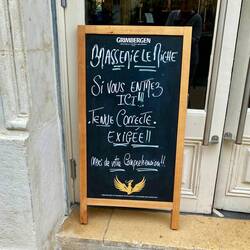 GRIMBERGEN
BRASSERIE LE NICHE
SI VOUS ENTREZ
ICI!!!
TENUE CORRECTE
EXIGÉE!!
Merci de votre Compréhension!!